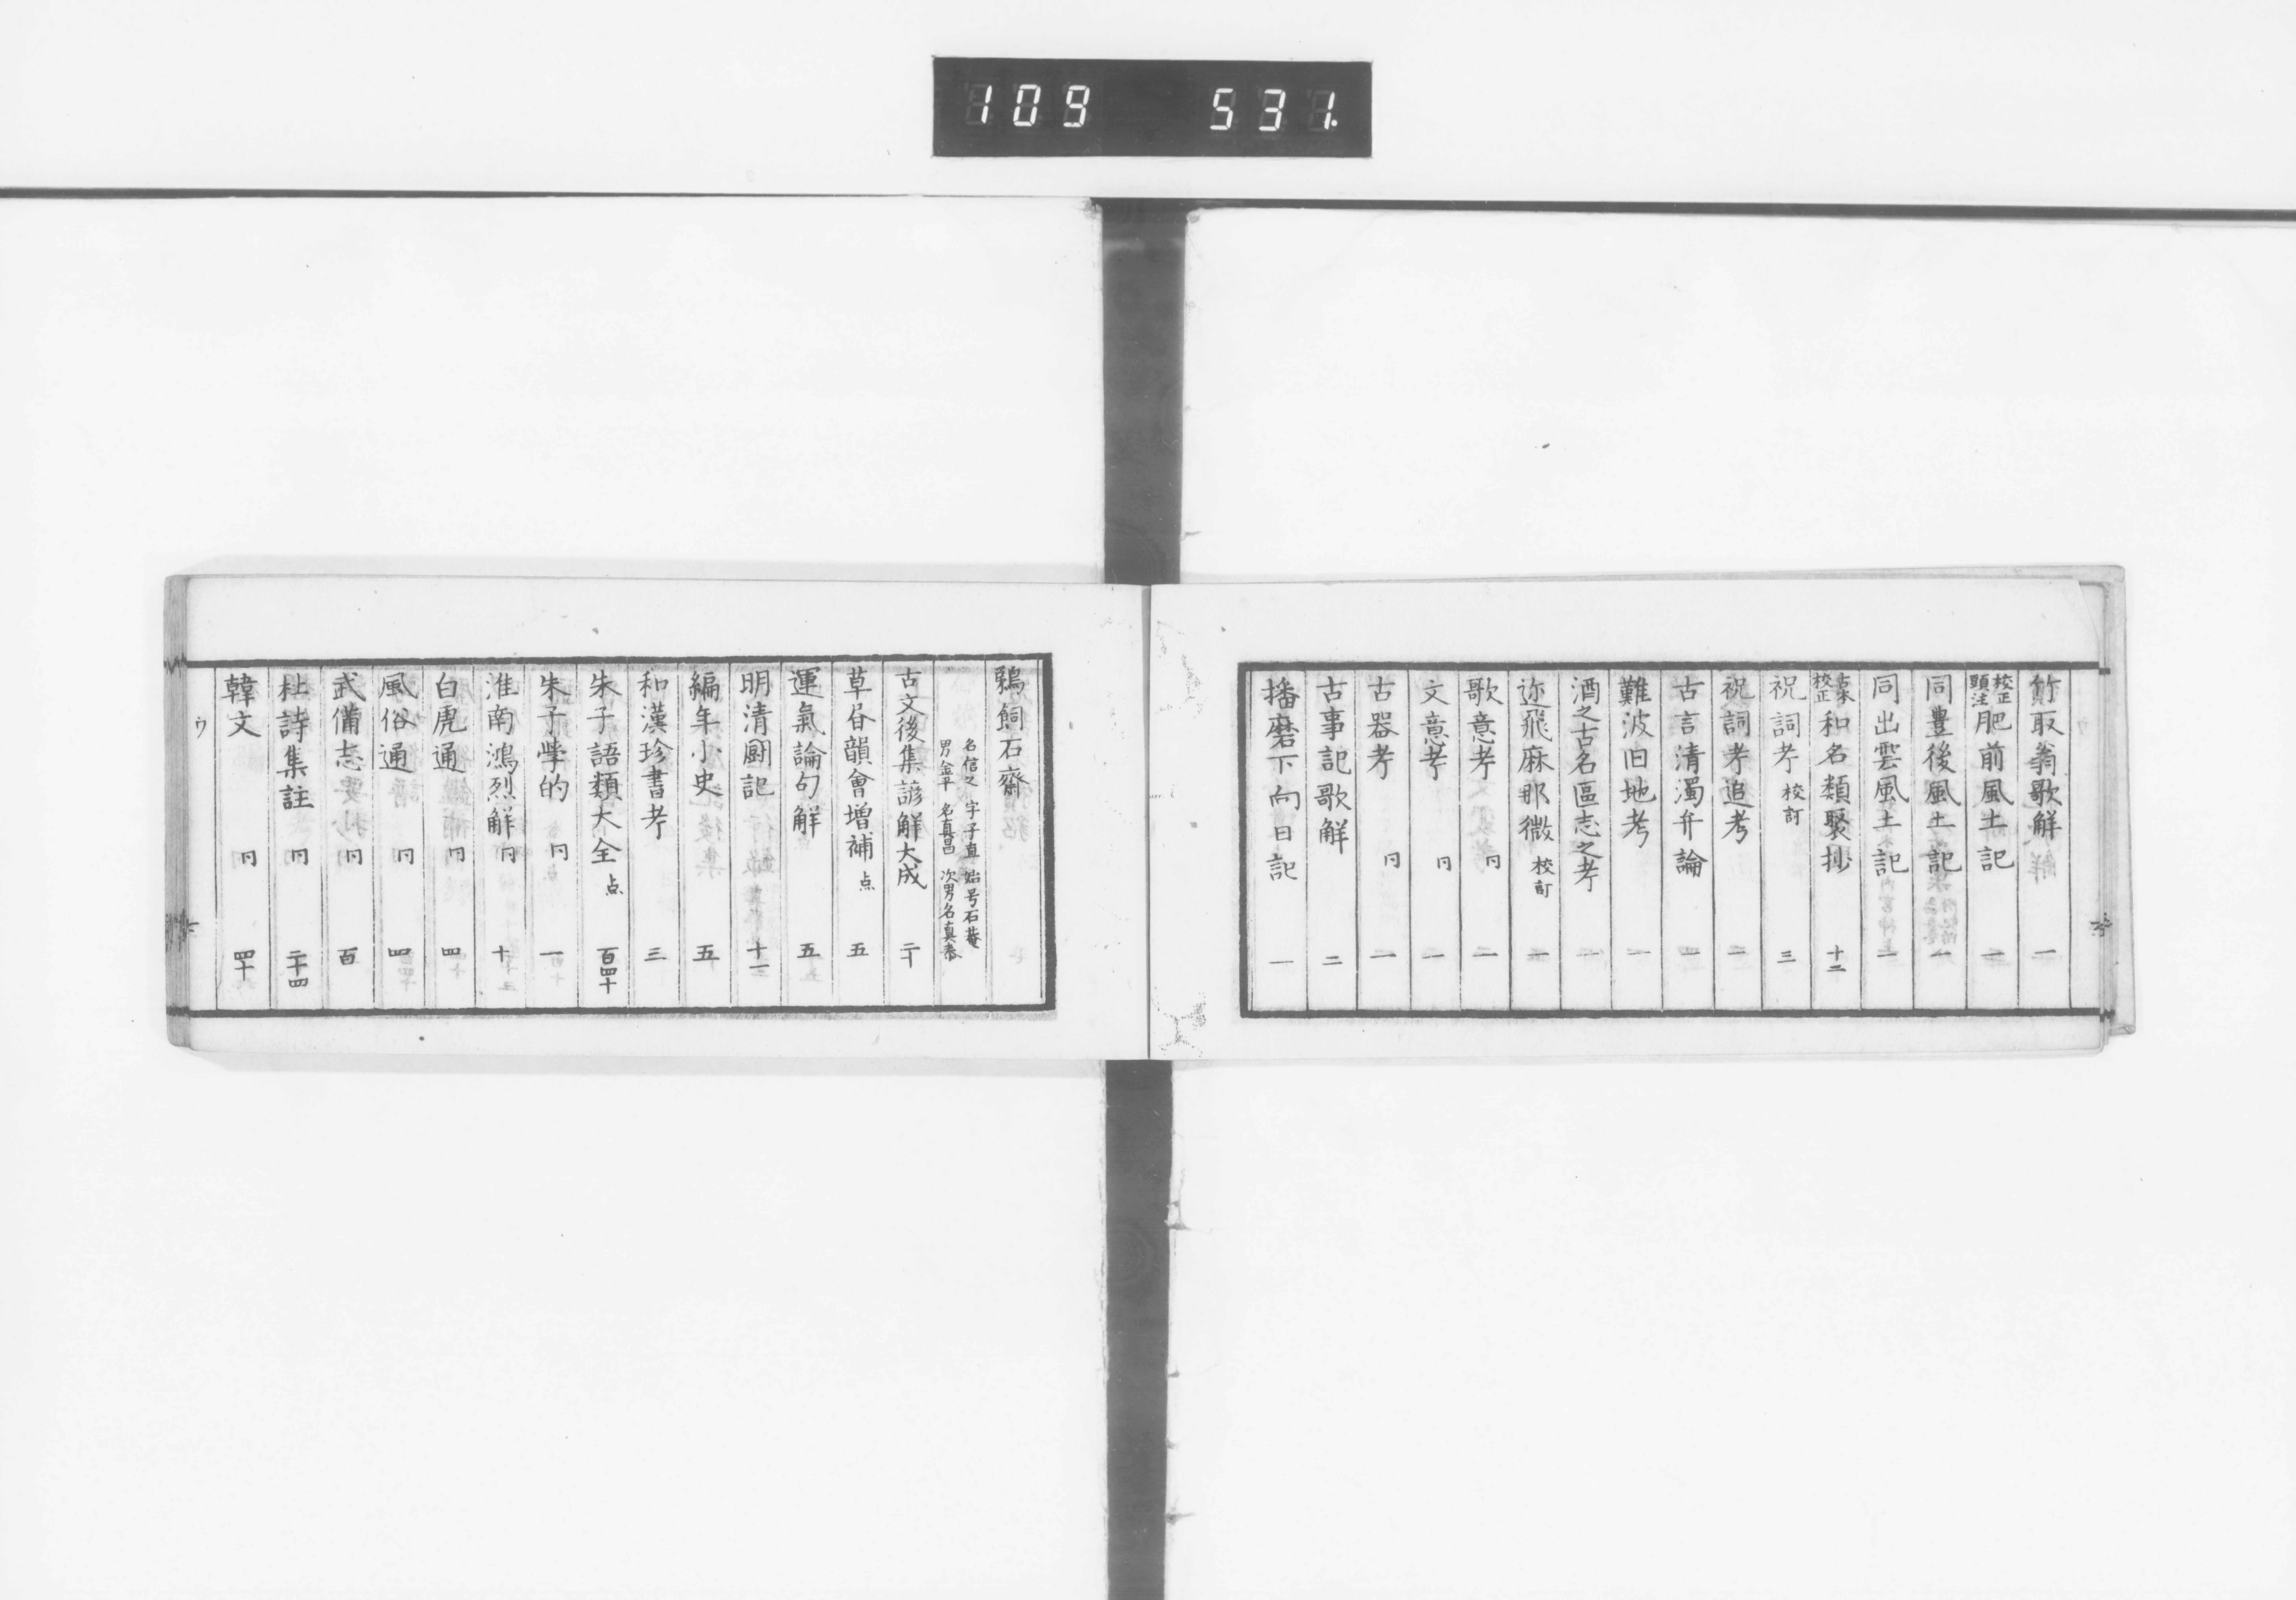 109 531.
竹取翁歌解 一
校正頭注肥前風土記 一
同豊後風土記 一
同出雲風土記 一
古本校正和名類聚抄 十二
祝詞考 校訂 三
祝詞考追考 一
古言清濁弁論 一
難波旧地考 一
酒之古名區志之考 一
迩飛麻那微 校訂 一
歌意考 同 一
文意考 同 一
古器考 同 一
古事記歌解 二
播磨下向日記 一
鵜飼石齋
名信之 字子直 始号石菴
男金平 名真昌 次男名真泰
古文後集諺解大成 二十
草昏韻會増補 点 五
運氣論句解 五
明清闘記 十一
編年小史 五
和漢珍書考 三
朱子語類大全 点 百四十
朱子学的 同 一
淮南鴻烈解 同 十
白虎通 同 四
風俗通 同 四
武備志 同 百
杜詩集註 同 二十四
韓文 同 四十
ウ